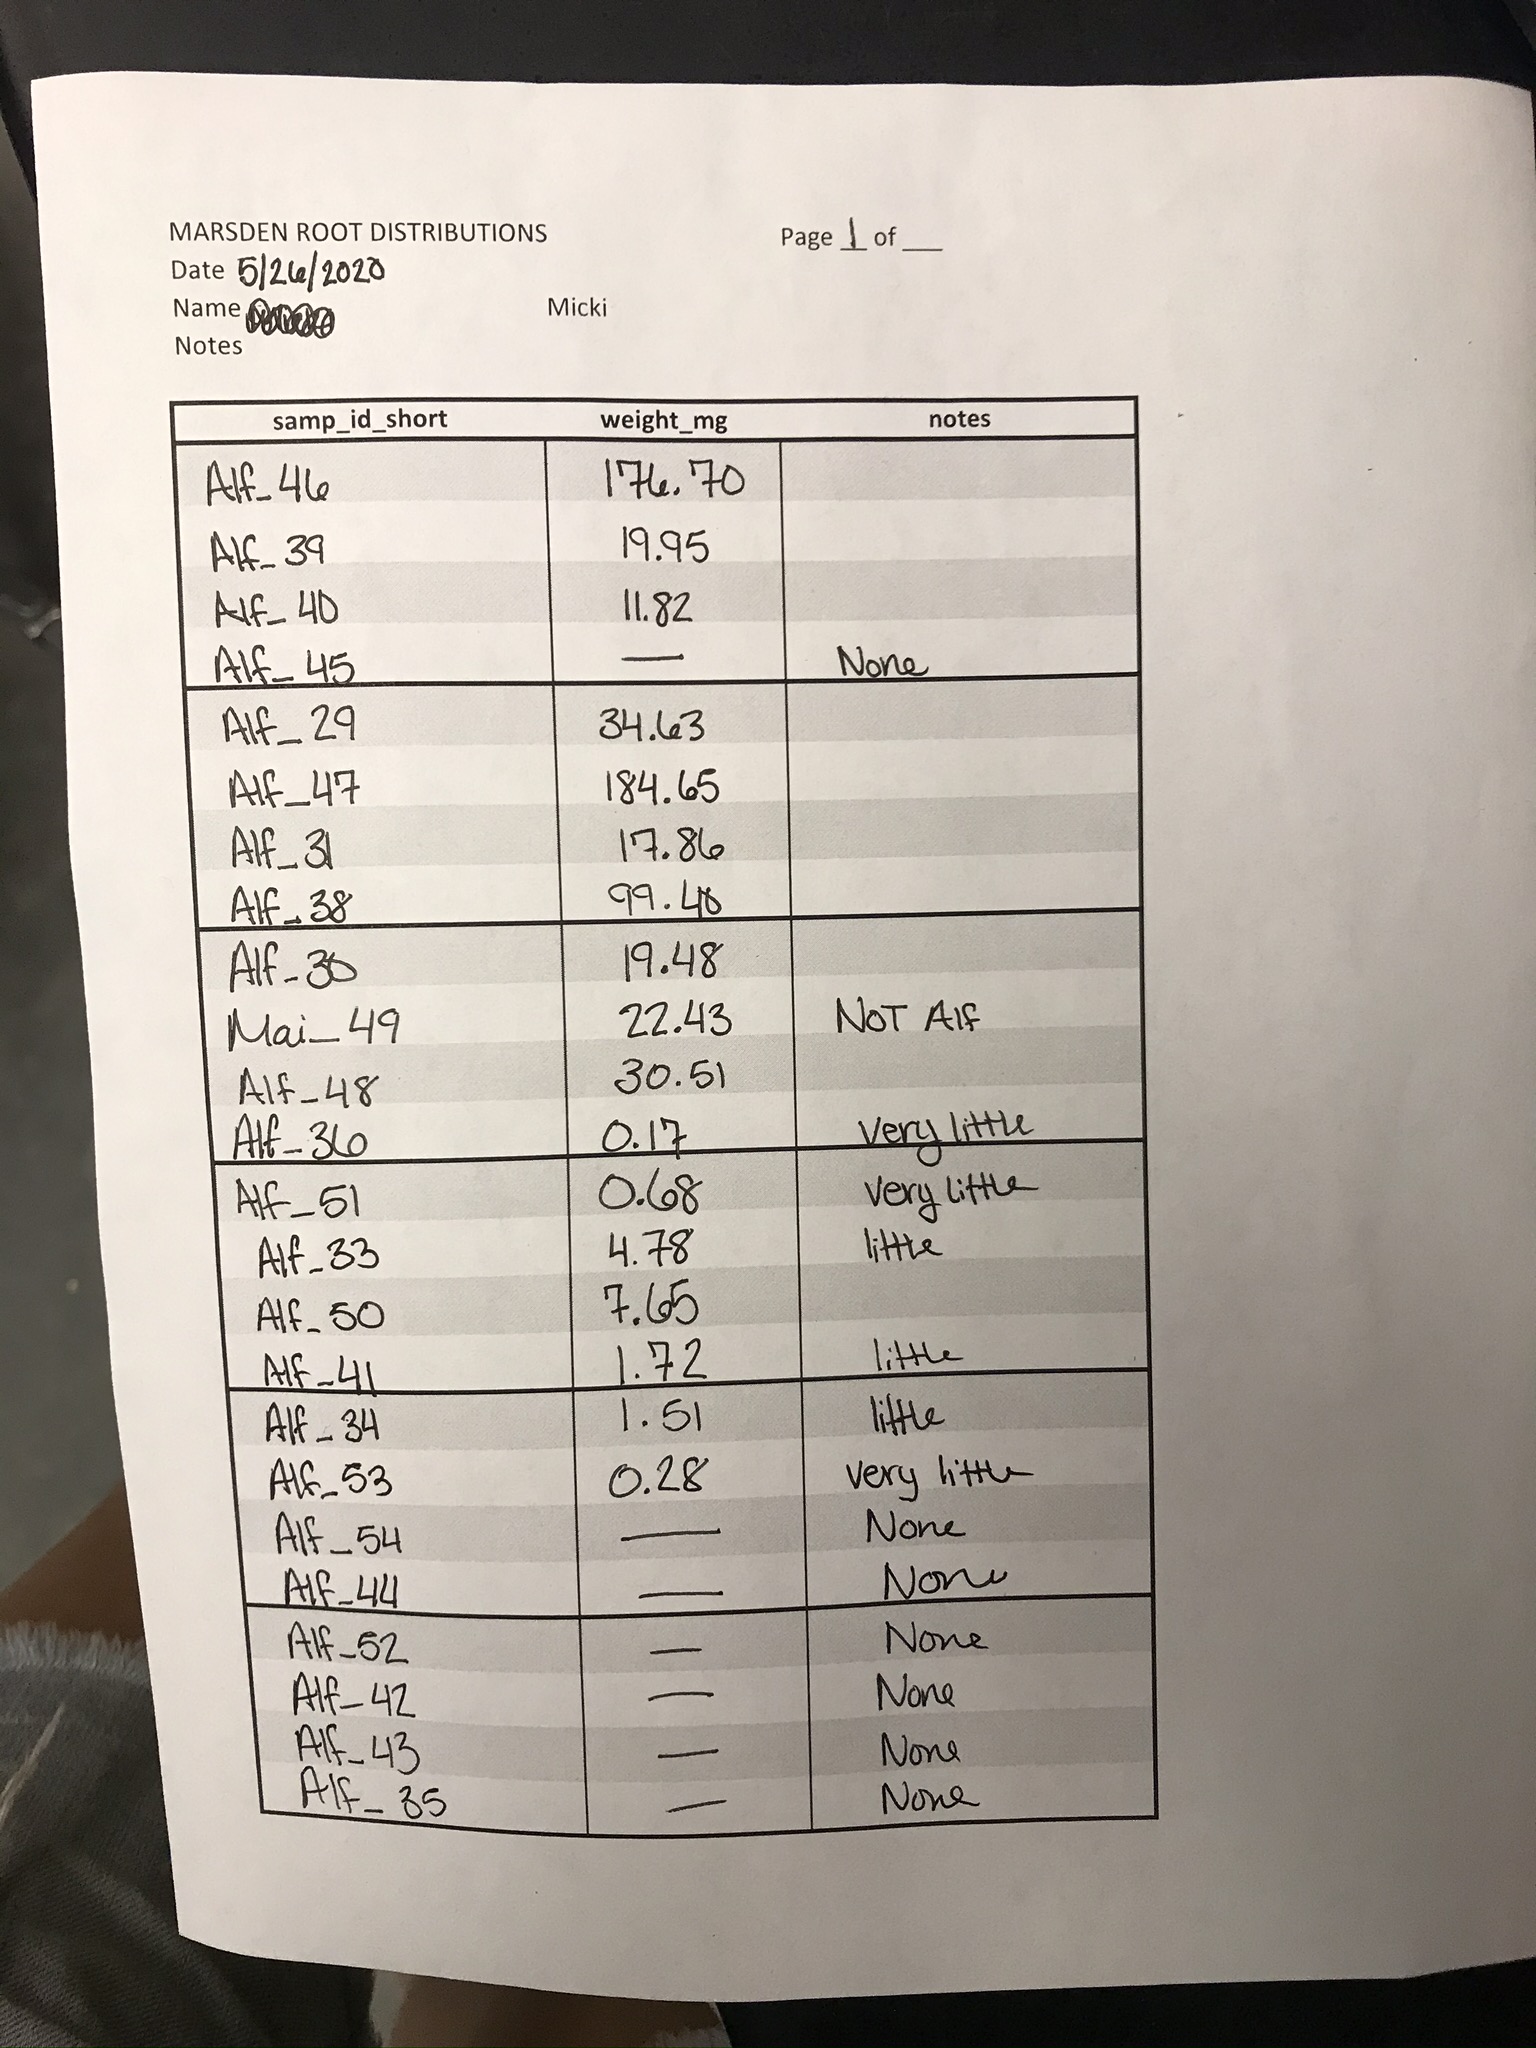 MARSDEN ROOT DISTRIBUTIONS Page 1 of __
Date 5/26/2020
Name Micki
Notes
samp_id_short weight_mg notes
Alf_46 176.70
Alf_39 19.95
Alf_40 11.82
Alf_45 — None
Alf_29 34.63
Alf_47 184.65
Alf_31 17.86
Alf_38 99.40
Alf_30 19.48
Mai_49 22.43 NOT Alf
Alf_48 30.51
Alf_36 0.17 very little
Alf_51 0.68 very little
Alf_33 4.78 little
Alf_50 7.65
Alf_41 1.72 little
Alf_34 1.51 little
Alf_53 0.28 very little
Alf_54 — None
Alf_44 — None
Alf_52 — None
Alf_42 — None
Alf_43 — None
Alf_35 — None